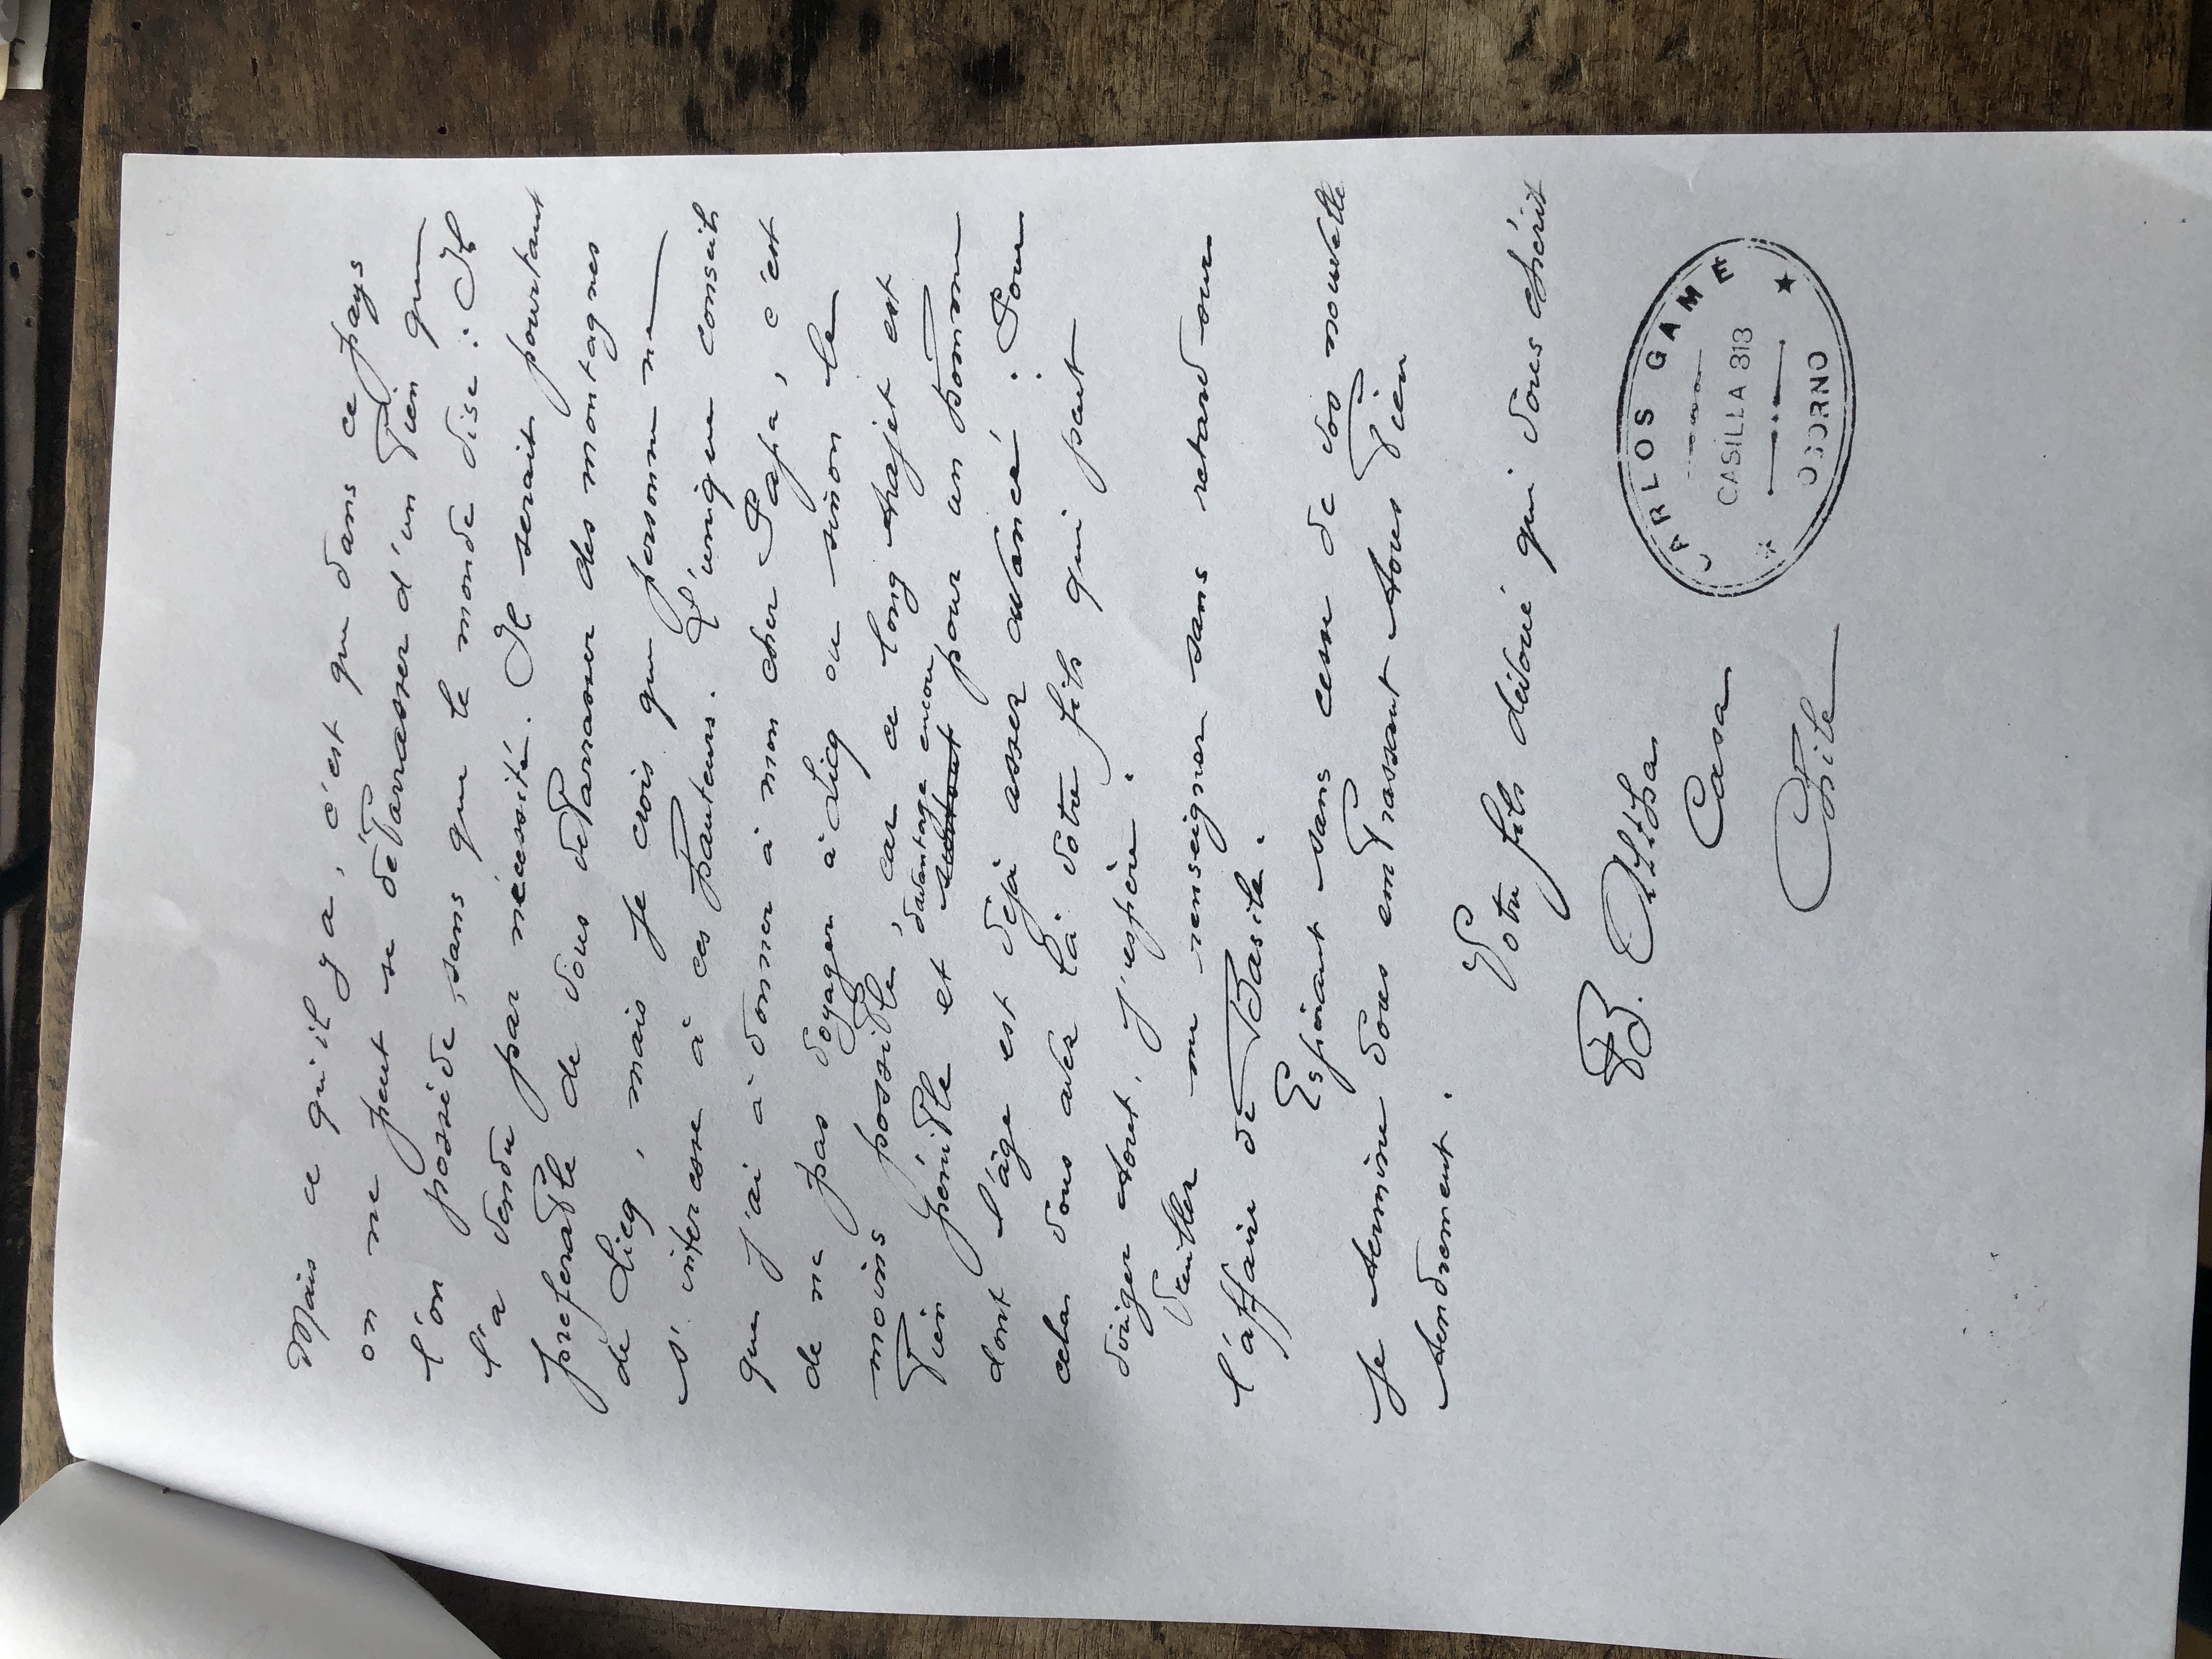 Mais ce qu'il y a, c'est que dans ce pays
on ne peut se débarrasser d'un bien que
l'on possède, sans que le monde dise : Il
l'a vendu par nécessité. Il serait pourtant
preferable de vous debarrasser des montagnes
de Licq, mais je crois que personne ne
s'interesse à ces hauteurs. L'unique conseil
que j'ai à donner à mon cher Papa, c'est
de ne pas voyager à Licq ou sinon le
moins possible, car ce long trajet est
bien penible et davantage encore pour un homme
dont l'âge est déjà assez avancé. Pour
cela vous avez là votre fils qui peut
voriger tout, j'espère.
Veuillez me renseigner sans retard sur
l'affaire de Basile.
Espérant sans cesse de vos nouvelle
je termine vous embrassant tous bien
tendrement.
Votre fils dévoué qui vous chérit
B.
Casa
CARLOS GAME
CASILLA 313
OSORNO
Chile